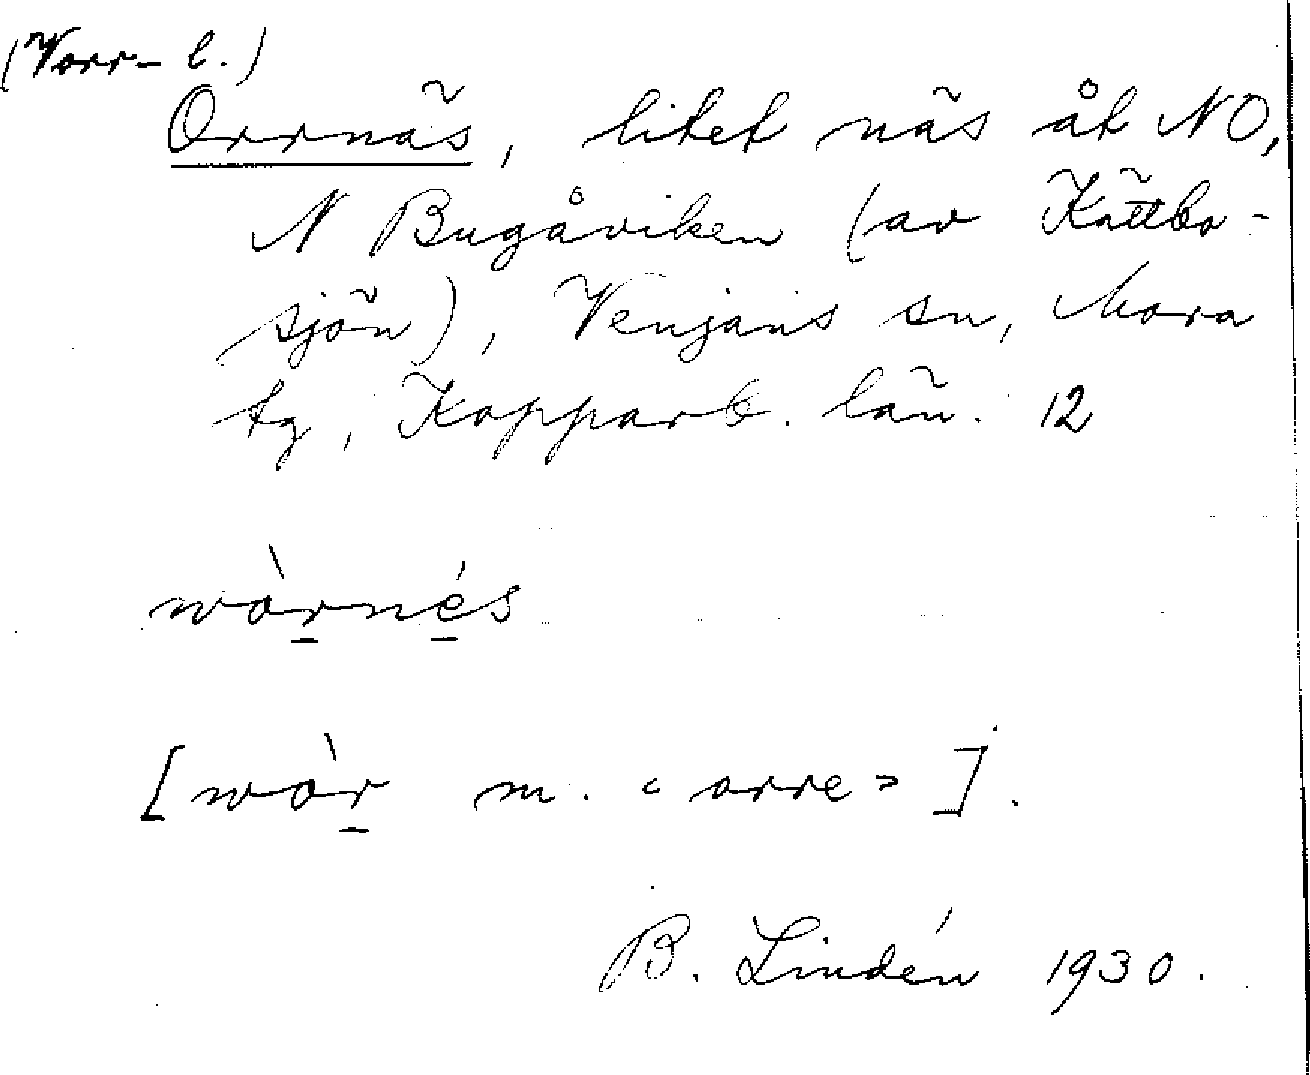 (Vorr- l.)
Orrnäs, litet näs åt NO,
N Bugåviken (av Kättbo-
sjön), Venjans sn, Mora
tg, Kopparb. län. 12
wòrnés
[wòr m. « orre » ].
B. Lindén 1930.